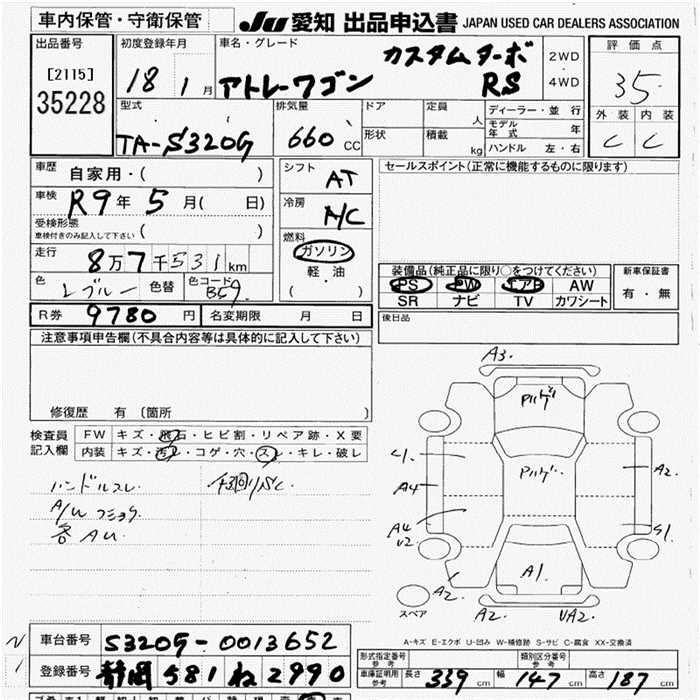 車内保管・守衛保管
JU 愛知 出品申込書 JAPAN USED CAR DEALERS ASSOCIATION
出品番号
[2115]
35228
初度登録年月
18 1 月
車名・グレード
アトレーワゴン
カスタムターボ
RS
2WD
・
4WD
評価点
3.5
外装 内装
C C
型式
TA-S320G
排気量
660 CC
ドア
形状
定員
人
積載
kg
ディーラー・並行
モデル年式 年
ハンドル 左・右
車歴
自家用・( )
車検
R9年 5月( 日)
受検形態
車検付きのみ記入して下さい ( )
走行
8万7千531km
色 色替 ( )
ブルー
色コード
B59
シフト
AT
冷房
A/C
燃料
ガソリン
軽油
( )
セールスポイント(正常に機能するものに限ります)
装備品(純正品に限り○をつけてください)
PS PW エアB AW
SR ナビ TV カワシート
新車保証書
有・無
後日品
R券 9780 円 名変期限 月 日
注意事項申告欄(不具合内容等は具体的に記入して下さい)
修復歴 有 〔箇所 〕
検査員
記入欄
FW キズ・飛石・ヒビ割・リペア跡・X要
内装 キズ・汚れ・コゲ・穴・スレ・キレ・破レ
ハンドルスレ
各AU
A3.
A4
A4
U2
A2.
A2.
S1
A1.
A2.
UA2.
スペア
A-キズ E-エクボ U-凹み W-補修跡 S-サビ C-腐食 XX-交換済
車台番号 S320G-0013652
登録番号 静岡 581 ね 2990
形式指定番号
参考
類別区分番号
参考
車庫証明用
参考
長さ 339 cm 幅 147 cm 高さ 187 cm